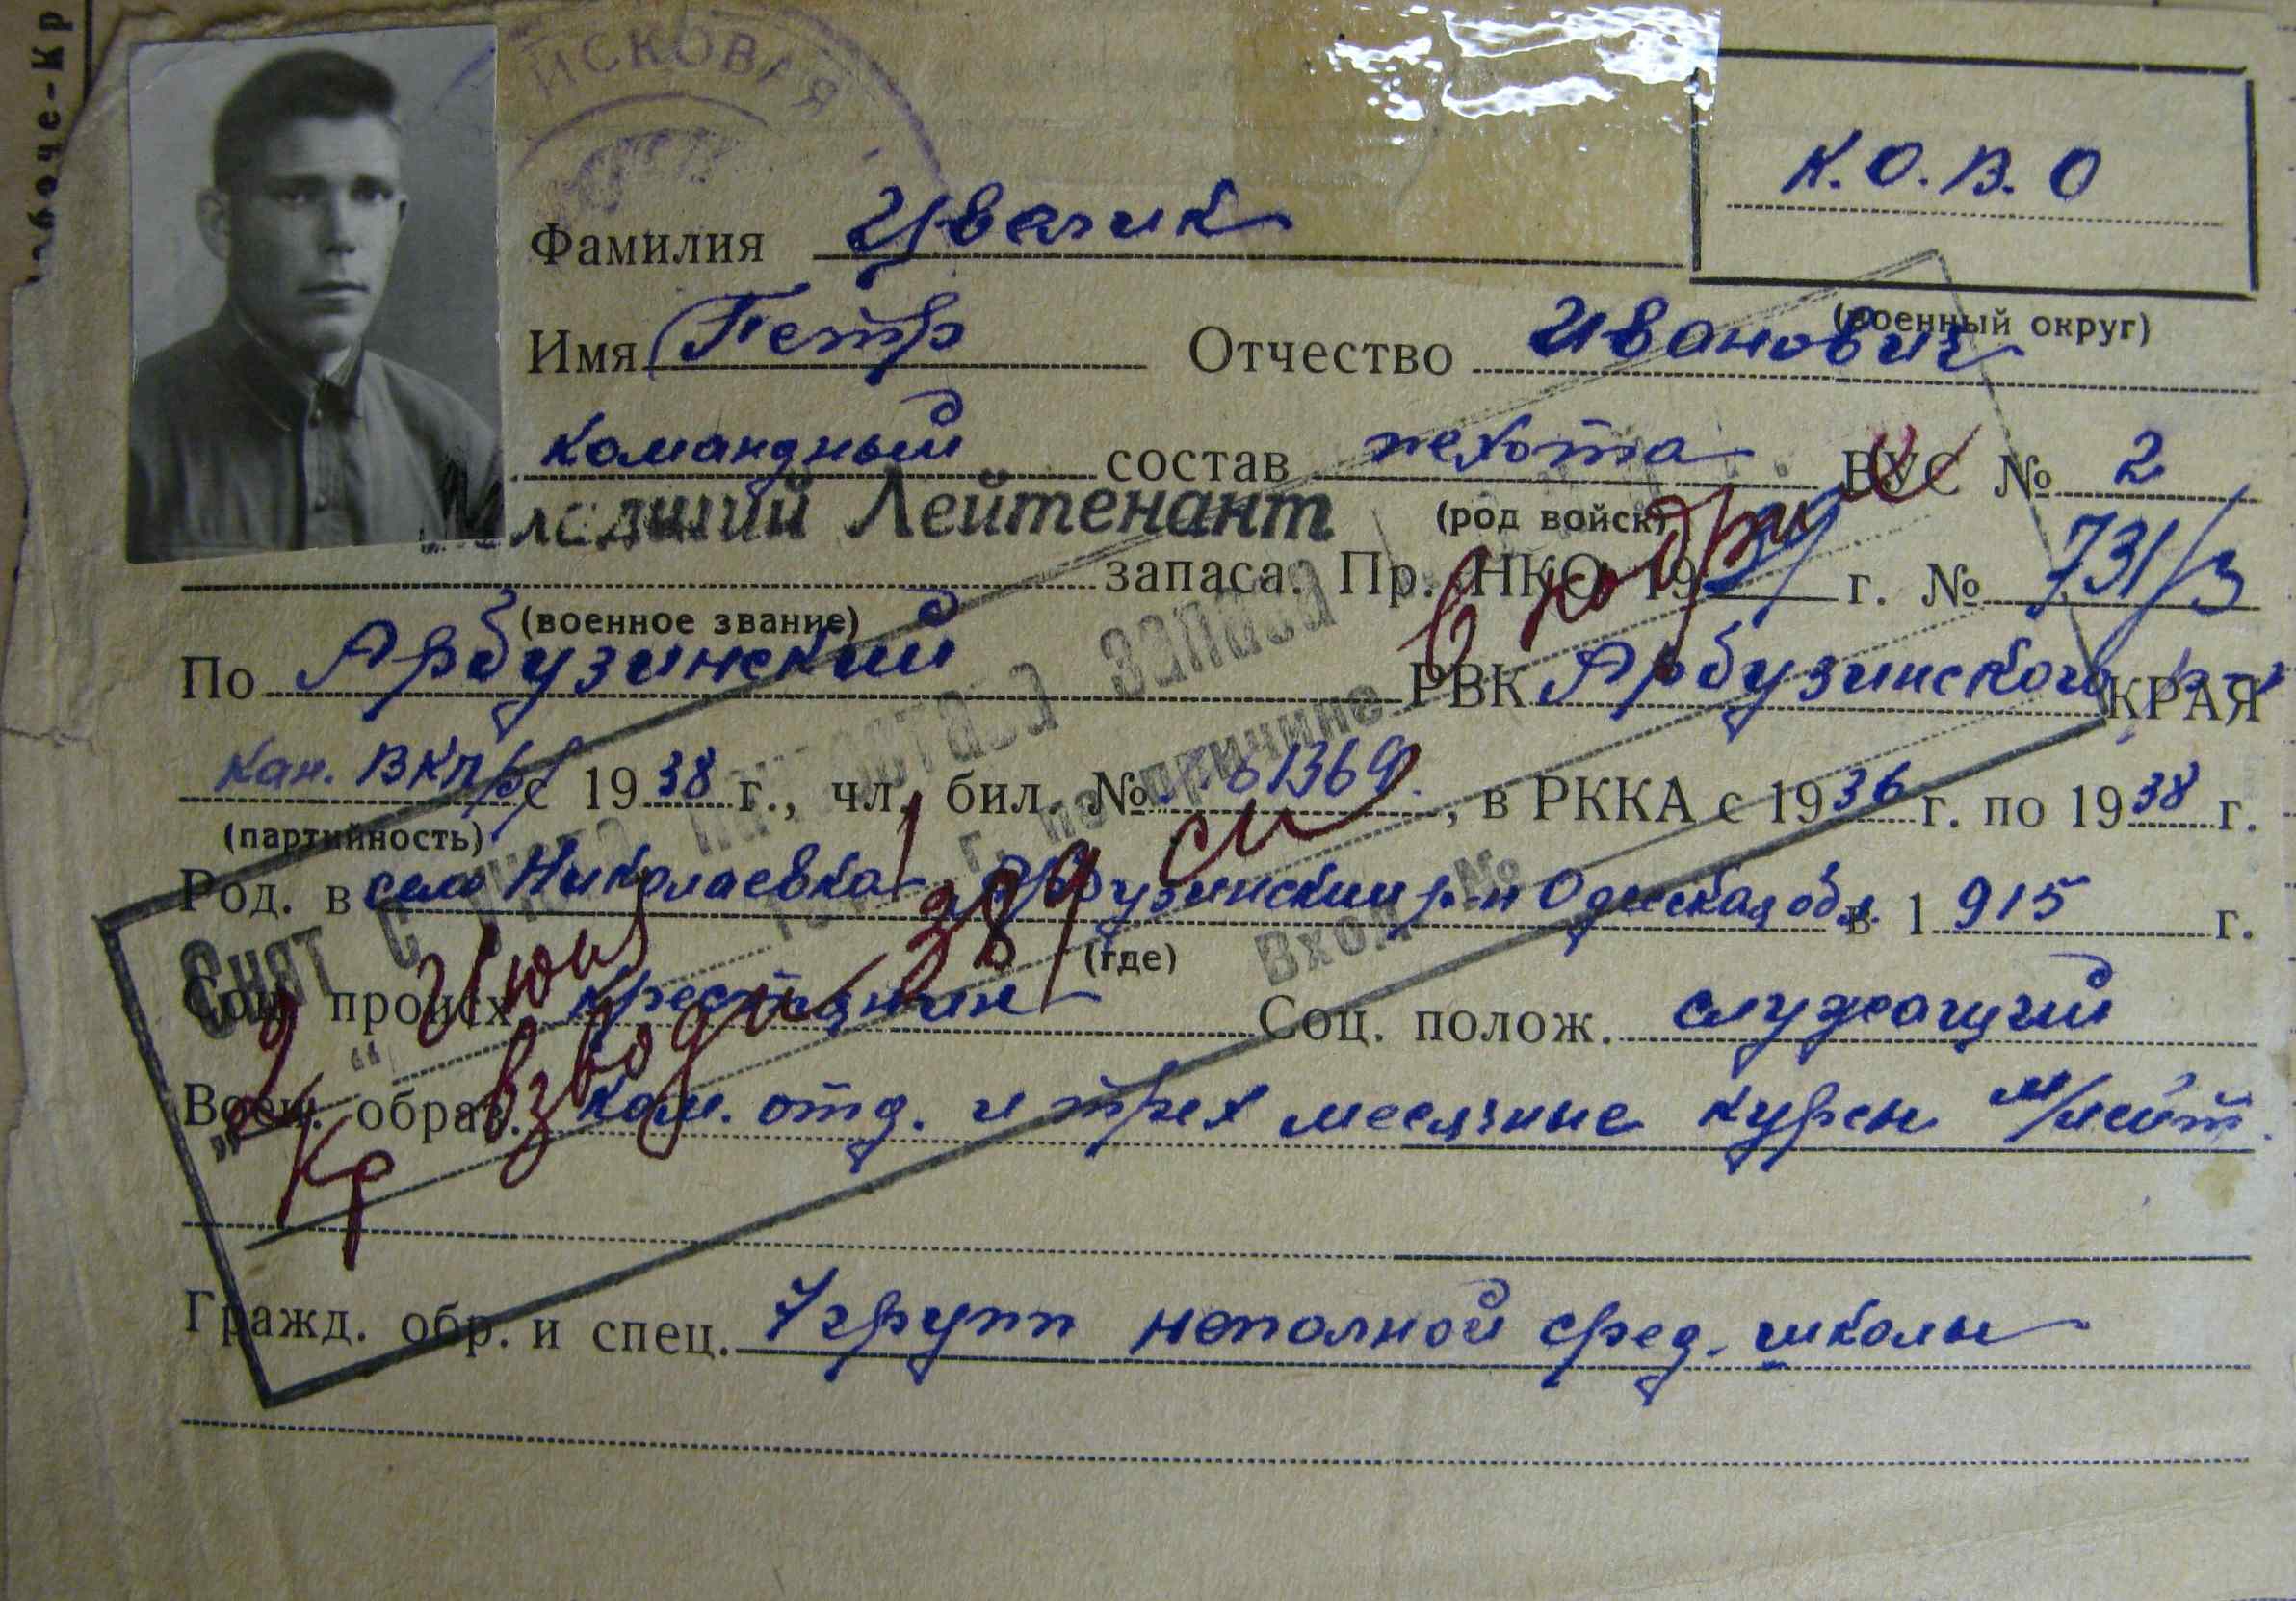 боче-Кр
ЙСКОВАЯ
К. О. В. О
(военный округ)
Фамилия Цвелик
Имя Петр Отчество Иванович
командный состав пехота ВУС № 2
(род войск)
Младший Лейтенант
запаса. Пр. НКО 1939 г. № 731/з
(военное звание)
По Арбузинский РВК Арбузинского р-н КРАЯ
кан. ВКП/б/ с 1938 г., чл. бил. № 61369, в РККА с 1936 г. по 1938 г.
(партийность)
Род. в село Николаевка Арбузинский р-н Одесская обл. в 1915 г.
(где)
Соц. происх. крестьянин Соц. полож. служащий
Воен. образ. ком. отд. и трех месячные курсы м/лейт.
Гражд. обр. и спец. 7 групп неполной сред. школы
Снят с учета начсостава запаса
г. по причине
Вход. №
в кадри